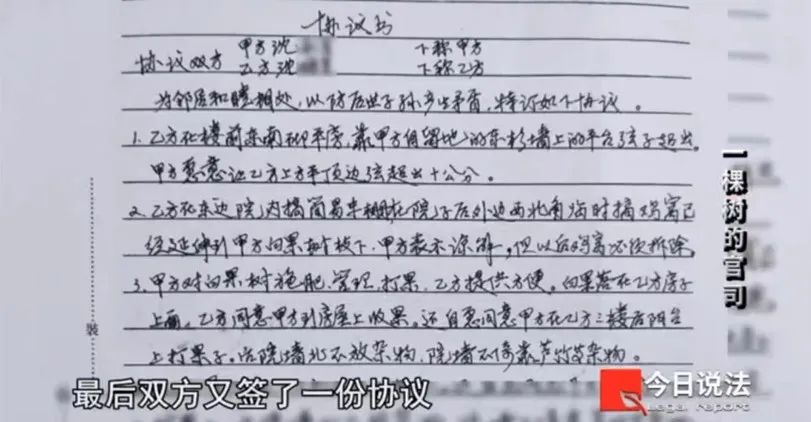 协议书
协议双方 甲方沈 下称甲方
乙方沈 下称乙方
为邻居和睦相处，以防后世子孙产生矛盾，特订如下协议。
1.乙方在楼前东南砌平房，靠甲方自留地的东山墙上的平台弦子超出。
甲方愿意让乙方上方平顶边弦超出十公分。
2.乙方在东边院内搞简易车棚，在院子后外边西北角临时搞鸡窝已
经延伸到甲方白果树枝下，甲方表示谅解，但以后鸡窝必须拆除。
3.甲方对白果树施肥、管理、打果，乙方提供方便。白果落在乙方房子
上面，乙方同意甲方到房屋上收果。还自愿同意甲方在乙方三楼后阳台
上打果子。沿院墙北不放杂物，院墙不倚靠芦竹等杂物。
装
一棵树的官司
最后双方又签了一份协议
今日说法
Legal report